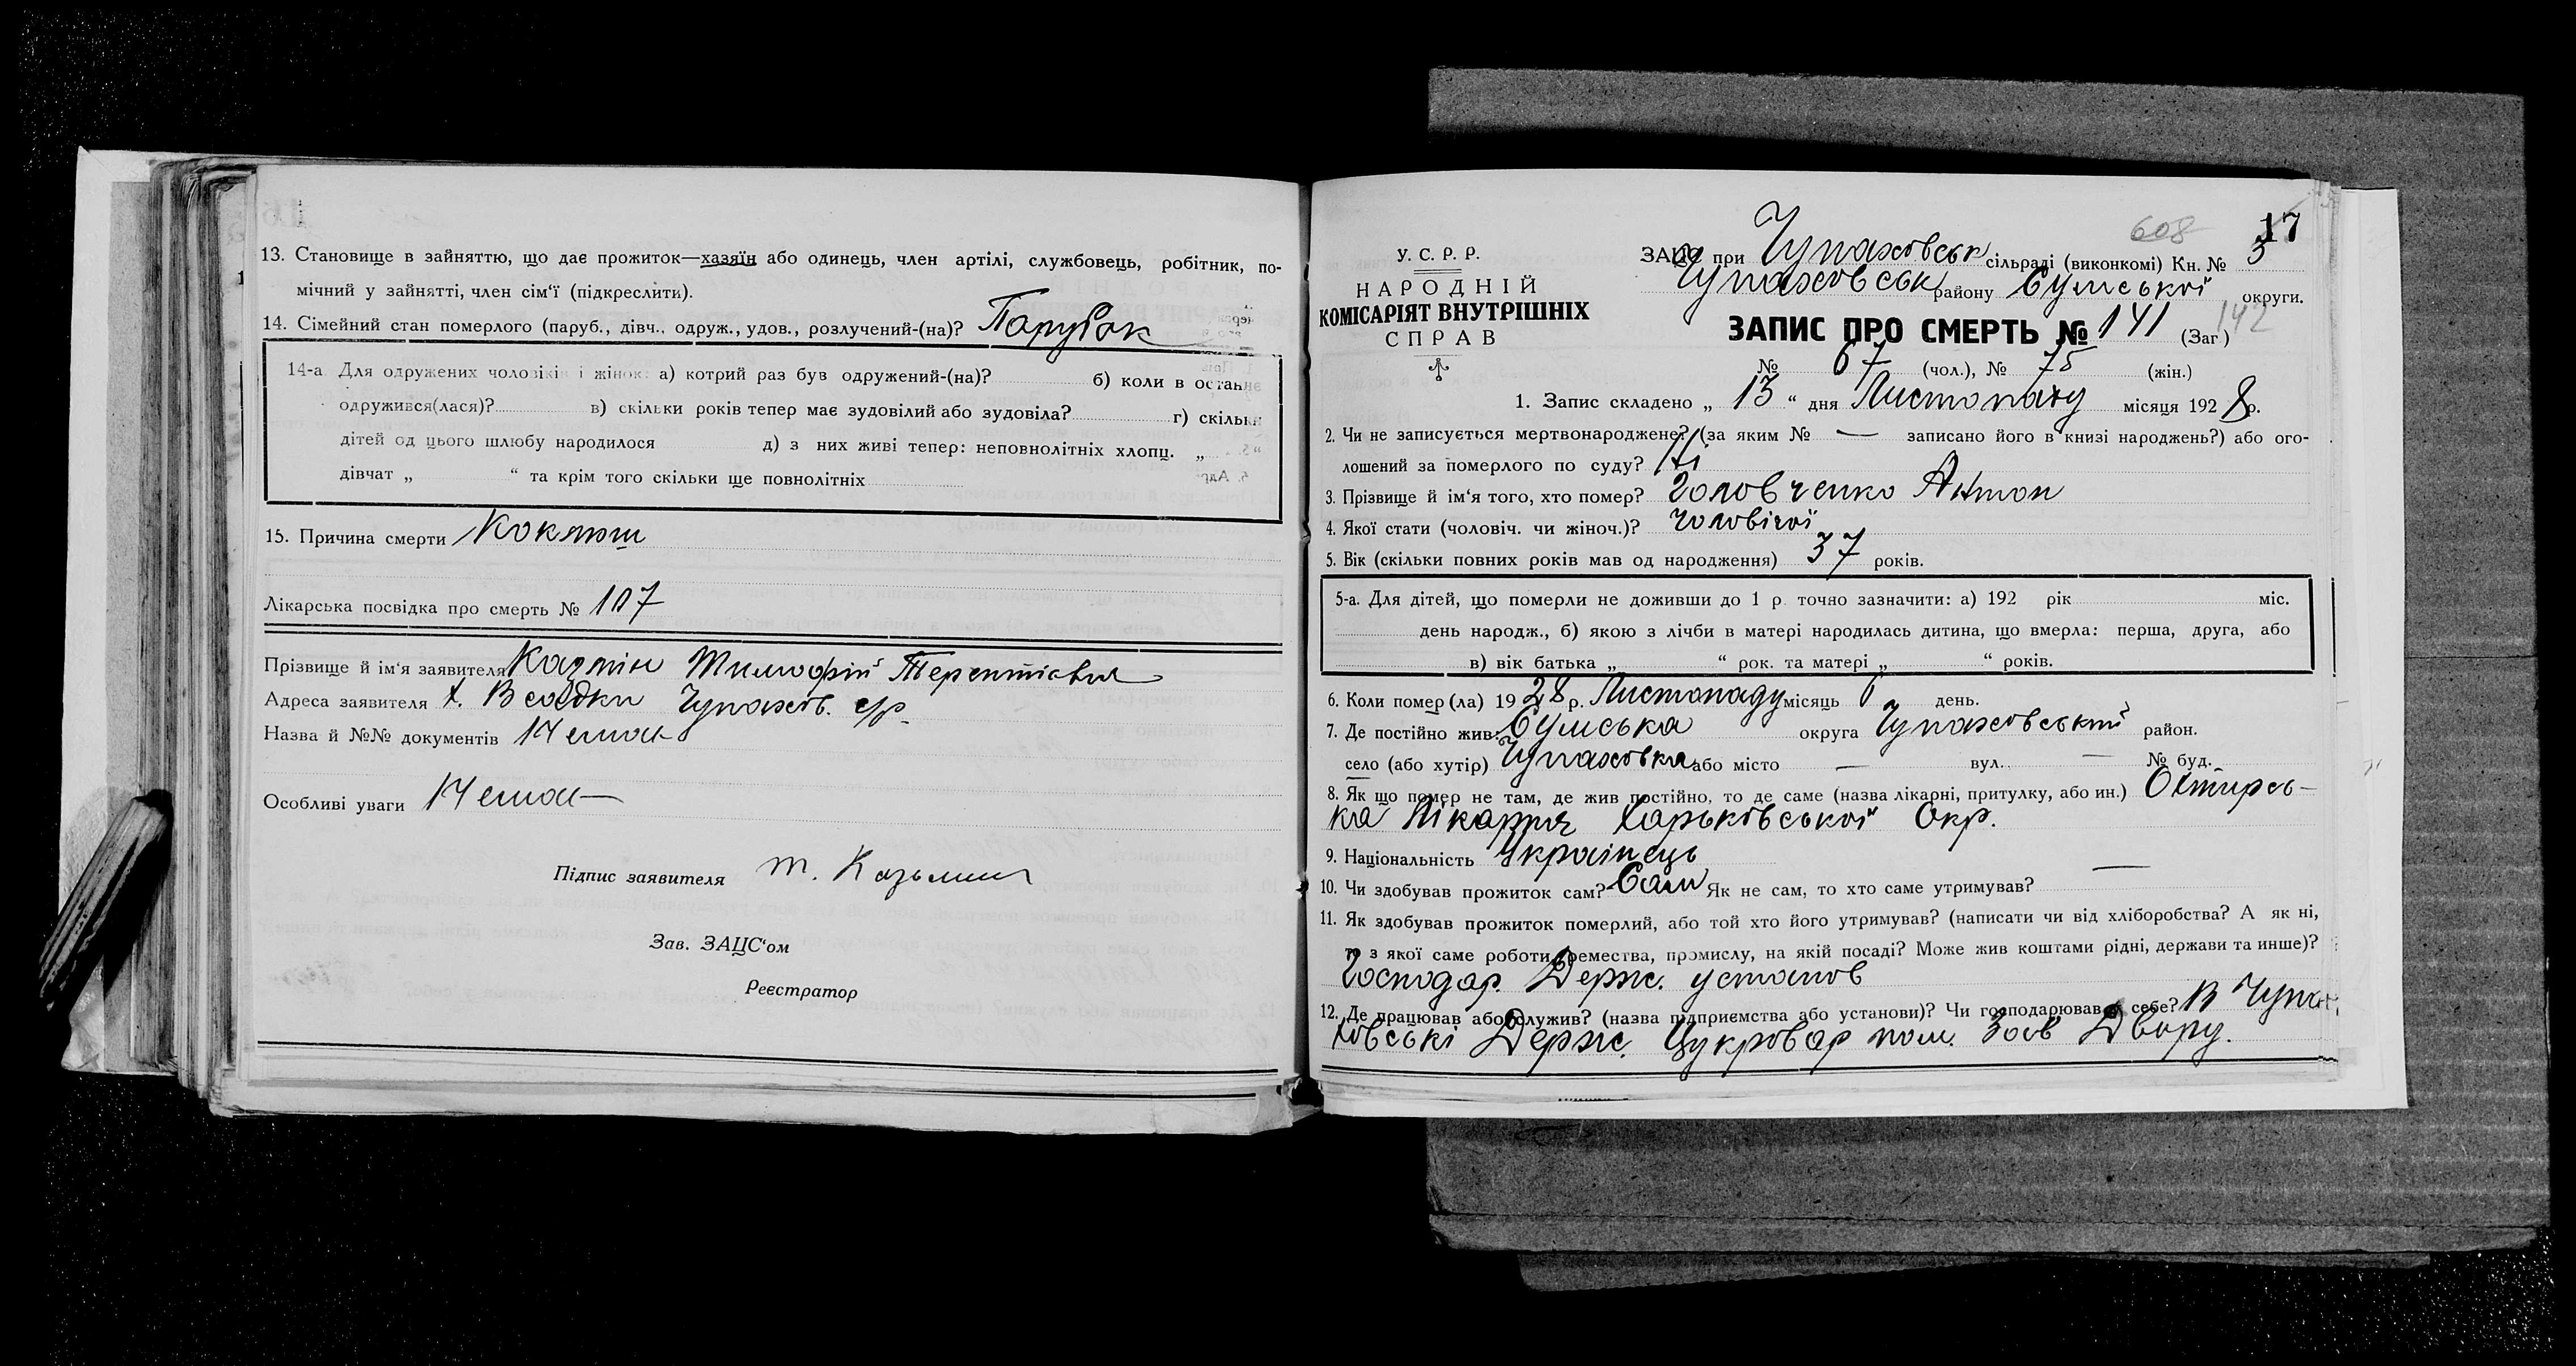 13. Становище в зайняттю, що дає прожиток—хазяїн або одинець, член артілі, службовець, робітник, по-
мічний у зайнятті, член сім'ї (підкреслити).
14. Сімейний стан померлого (паруб., дівч., одруж., удов., розлучений-(на)? Парубок
14-а Для одружених чоловіків і жінок: а) котрий раз був одружений-(на)? б) коли в останнє
одружився(лася)? в) скільки років тепер має зудовілий або зудовіла? г) скільки
дітей од цього шлюбу народилося д) з них живі тепер: неповнолітніх хлопц. „
дівчат „ “ та крім того скільки ще повнолітніх
15. Причина смерти Коклюш
Лікарська посвідка про смерть № 107
Прізвище й ім'я заявителя Казмін Тимофій Терентієвич
Адреса заявителя х. Всадки Чупахів. с/р.
Назва й №№ документів Немає
Особливі уваги Немає
Підпис заявителя Т. Казьмин
Зав. ЗАЦС‘ом
Реєстратор
608
17
У. С. Р. Р.
НАРОДНІЙ
КОМІСАРІЯТ ВНУТРІШНІХ
СПРАВ
ЗАЦС при Чупаховськ сільраді (виконкомі) Кн. № 3
Чупаховськ району Сумської округи.
ЗАПИС ПРО СМЕРТЬ № 141 (Заг.) 142
№ 67 (чол.), № 75 (жін.)
1. Запис складено „ 13 “ дня Листопаду місяця 1928 р.
2. Чи не записується мертвонароджене? (за яким № — записано його в книзі народжень?) або ого-
лошений за померлого по суду? Ні
3. Прізвище й ім'я того, хто помер? Головченко Антон
4. Якої стати (чоловіч. чи жіноч.)? чоловічої
5. Вік (скільки повних років мав од народження) 37 років.
5-а. Для дітей, що померли не доживши до 1 р. точно зазначити: а) 192 рік міс.
день народж., б) якою з лічби в матері народилась дитина, що вмерла: перша, друга, або
в) вік батька „ “ рок. та матері „ “ років.
6. Коли помер (ла) 1928 р. Листопаду місяць 6 день.
7. Де постійно жив: Сумська округа Чупаховський район.
село (або хутір) Чупаховка або місто — вул. — № буд.
8. Як що помер не там, де жив постійно, то де саме (назва лікарні, притулку, або ин.) Охтирсь-
ка Лікарня Харьківської Окр.
9. Національність Українець
10. Чи здобував прожиток сам? Сам Як не сам, то хто саме утримував? —
11. Як здобував прожиток померлий, або той хто його утримував? (написати чи від хліборобства? А як ні,
то з якої саме роботи, ремества, промислу, на якій посаді? Може жив коштами рідні, держави та инше)?
Господар. Держ. установ
12. Де працював або служив? (назва підприємства або установи)? Чи господарював у себе? В Чупа-
ховські Держ. Цукровар пом. Зав Двору.